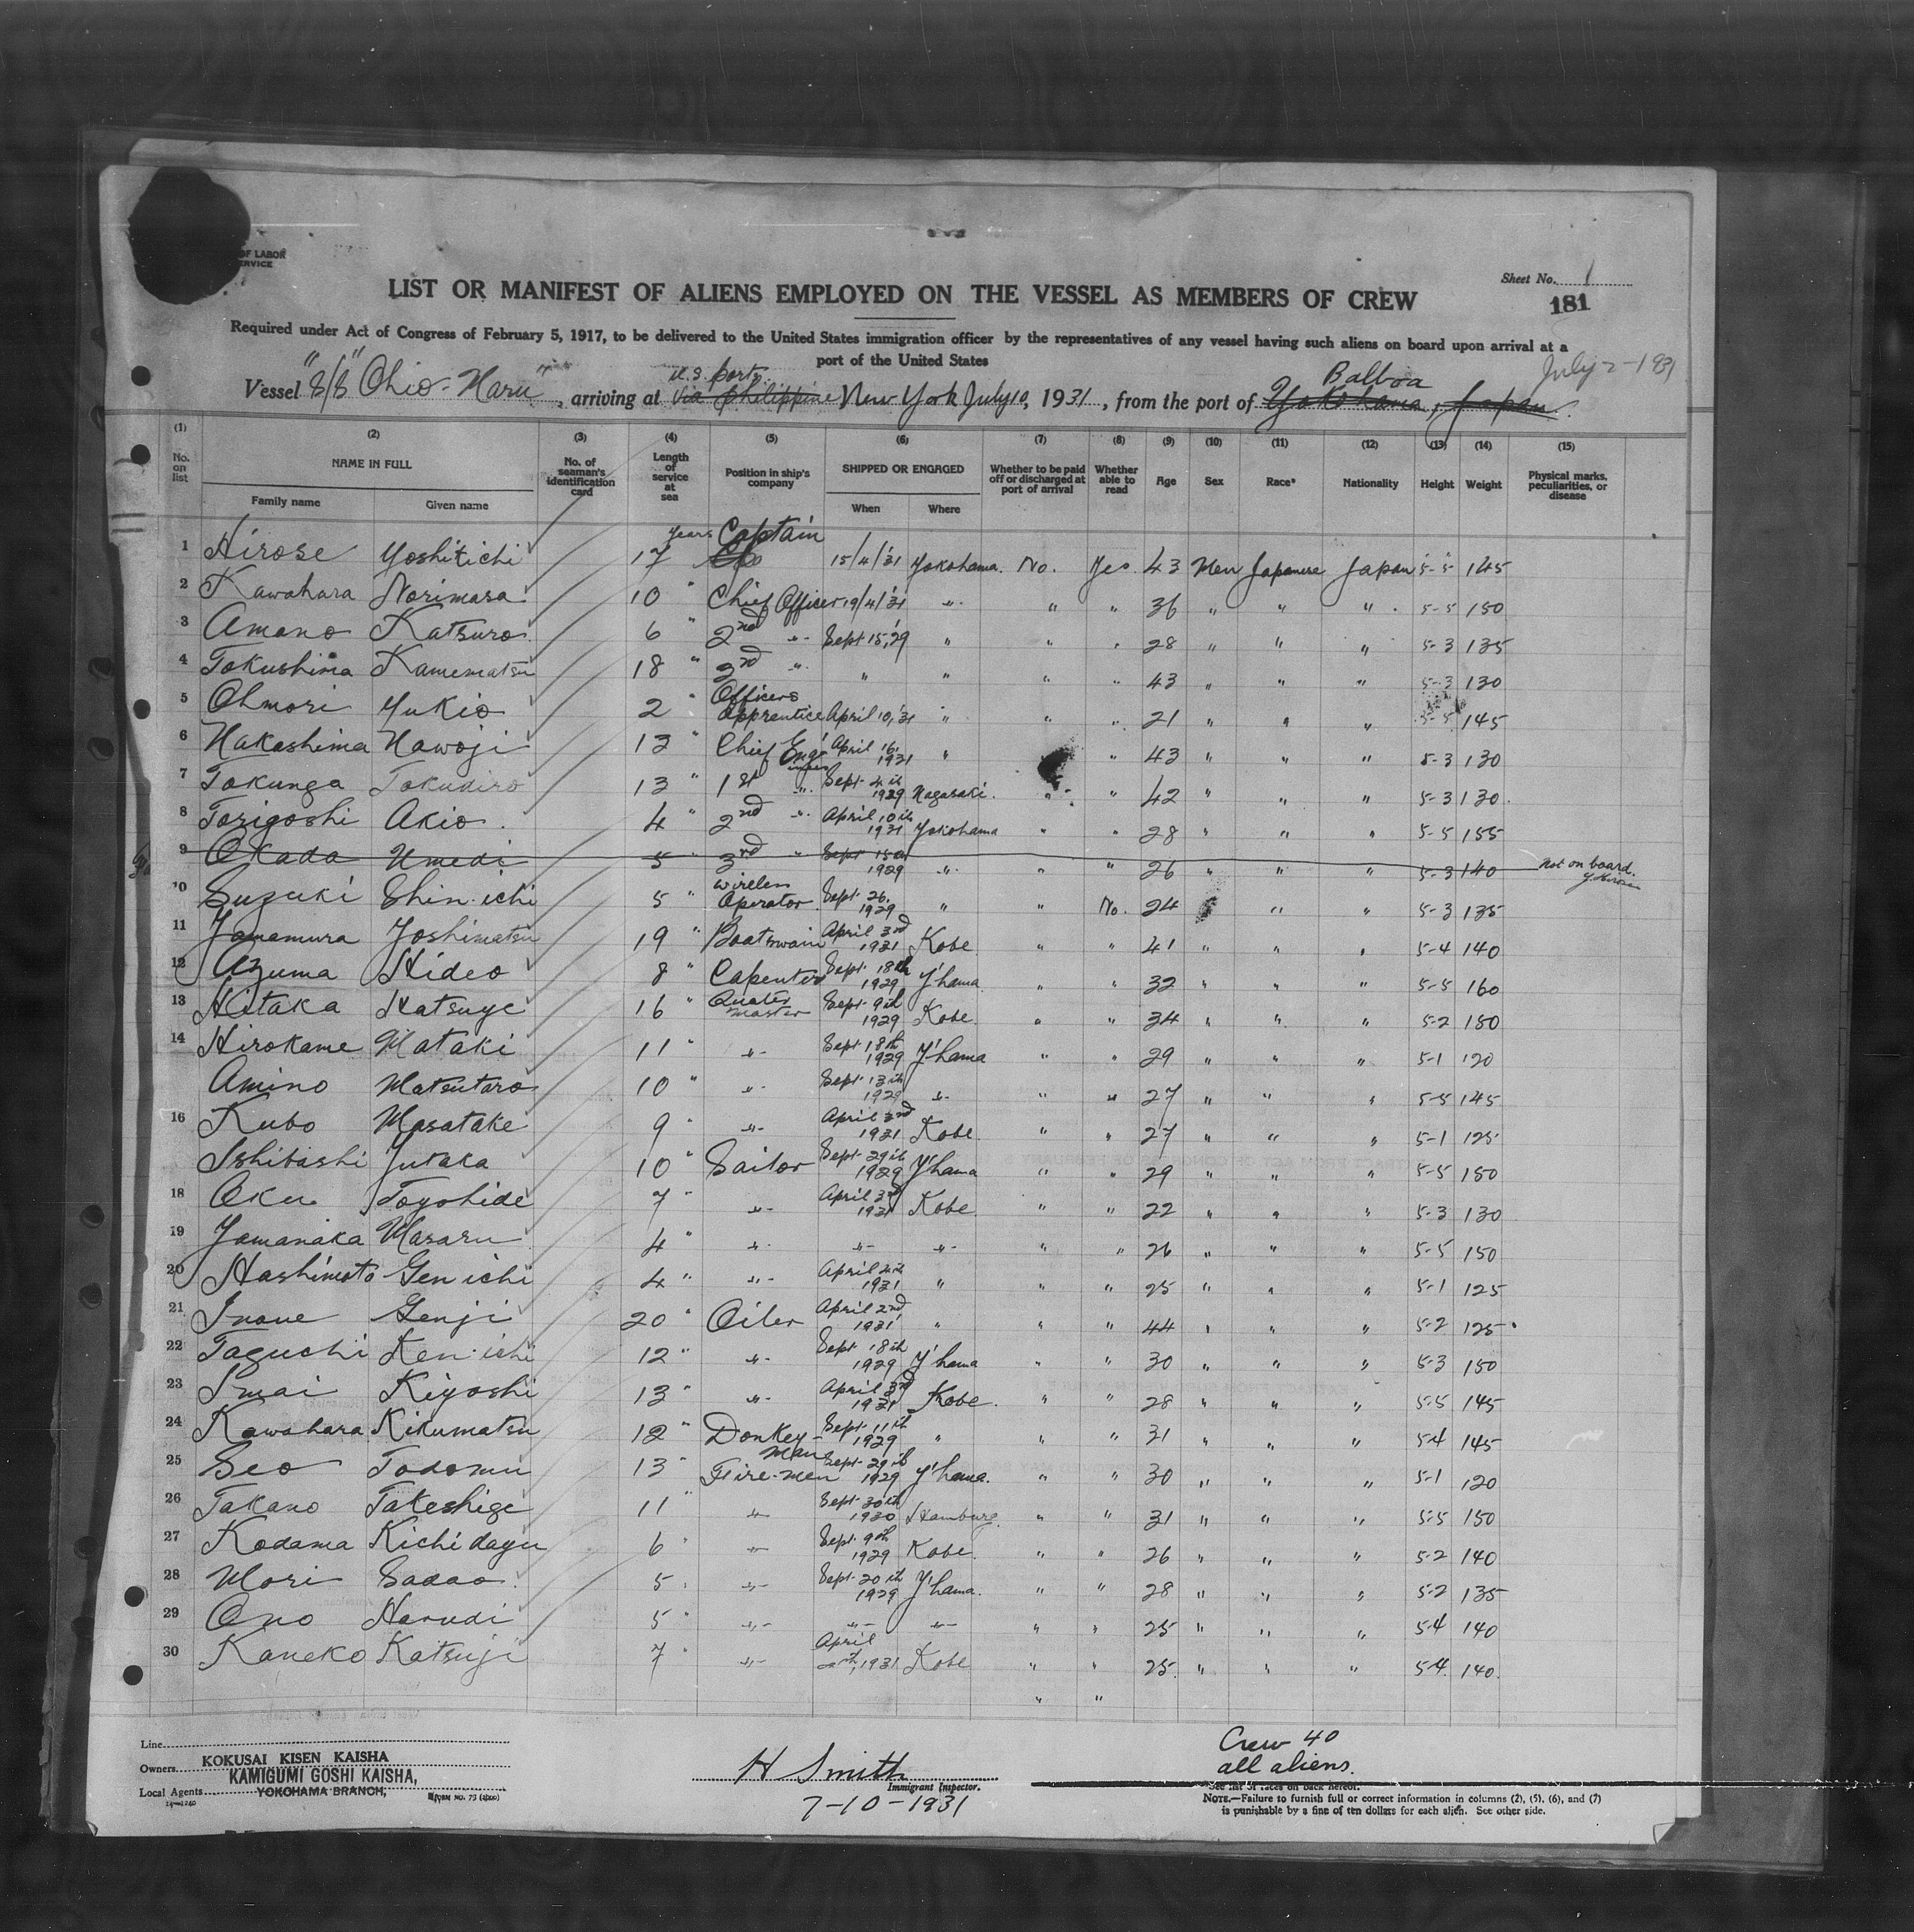 OF LABOR
ERVICE
Sheet No. 1
181
LIST OR MANIFEST OF ALIENS EMPLOYED ON THE VESSEL AS MEMBERS OF CREW
Required under Act of Congress of February 5, 1917, to be delivered to the United States immigration officer by the representatives of any vessel having such aliens on board upon arrival at a
port of the United States
U.S. ports Balboa July 2-1931
Vessel "S/S" Ohio-Maru, arriving at via Philippine New York July 10, 1931, from the port of Yokohama, Japan.
(1) (2) (3) (4) (5) (6) (7) (8) (9) (10) (11) (12) (13) (14) (15)
No. on list NAME IN FULL Family name Given name No. of seaman's identification card Length of service at sea Position in ship's company SHIPPED OR ENGAGED When Where Whether to be paid off or discharged at port of arrival Whether able to read Age Sex Race* Nationality Height Weight Physical marks, peculiarities, or disease
1 Hirose Yoshikichi 17 years Captain 15/4/'31 Yokohama. No. Yes 43 Men Japanese Japan 5-5 145
2 Kawahara Norimasa 10 " Chief Officer 19/4/'31 " " " 36 " " " 5-5 150
3 Amano Katsuro 6 " 2nd " Sept 15,'29 " " " 28 " " " 5-3 135
4 Tokushima Kamematsu 18 " 3rd " " " " " 43 " " " 5-3 130
5 Ohmori Yukio 2 " Officers Apprentice April 10,'31 " " " 21 " " " 5-5 145
6 Nakashima Nawoji 13 " Chief Engineer April 16, 1931 " " 43 " " " 5-3 130
7 Tokunga Tokudiro 13 " 1st " Sept 4th 1929 Nagasaki. " " 42 " " " 5-3 130
8 Torigoshi Akio 4 " 2nd " April 10th 1931 Yokohama " " 28 " " " 5-5 155
9 Okada Umedi 5 " 3rd " Sept 15th 1929 " " " 26 " " " 5-3 140 Not on board. Y. Hirose
10 Suzuki Shin-ichi 5 " Wireless Operator Sept 26, 1929 " " No. 24 " " 5-3 135
11 Yamamura Yoshimatsu 19 " Boatswain April 3rd 1931 Kobe " " 41 " " " 5-4 140
12 Azuma Hideo 8 " Capenter Sept 18th 1929 Y'hama " " 32 " " " 5-5 160
13 Hitaka Katsuye 16 " Quater master Sept 9th 1929 Kobe " " 34 " " " 5-2 150
14 Hirokame Mataki 11 " " Sept 18th 1929 Y'hama " " 29 " " " 5-1 120
Amino Matsutaro 10 " " Sept 13th 1929 " " " 27 " " " 5-5 145
16 Kubo Masatake 9 " " April 3rd 1931 Kobe " " 27 " " " 5-1 125
Ishibashi Yutaka 10 " Sailor Sept 29th 1929 Y'hama " " 29 " " " 5-5 150
18 Oku Toyohide 7 " " April 3rd 1931 Kobe " " 22 " " " 5-3 130
19 Yamanaka Masaru 4 " " " " " " 26 " " " 5-5 150
20 Hashimoto Gen ichi 4 " " April 4th 1931 " " " 25 " " " 5-1 125
21 Inoue Genji 20 " Oiler April 2nd 1931 " " " 44 " " " 5-2 125
22 Taguchi Ken-ichi 12 " " Sept 18th 1929 Y'hama " " 30 " " " 5-3 150
23 Imai Kiyoshi 13 " " April 3rd 1931 Kobe. " " 28 " " " 5-5 145
24 Kawahara Kikumatsu 12 " Donkey-man Sept 11th 1929 " " " 31 " " " 5-4 145
25 Seo Todomu 13 " Fire-men Sept 29th 1929 Y'hama. " " 30 " " " 5-1 120
26 Takano Takeshige 11 " " Sept 30th 1930 Hamburg. " " 31 " " " 5-5 150
27 Kodama Kichidayu 6 " " Sept 9th 1929 Kobe. " " 26 " " " 5-2 140
28 Mori Sadao 5 " " Sept 20th 1929 Y'hama. " " 28 " " " 5-2 135
29 Ono Harudi 5 " " " " " " 25 " " " 5-4 140
30 Kaneko Katsuji 7 " " April 1931 Kobe " " 25 " " " 5-4 140
" "
Line
Owners KOKUSAI KISEN KAISHA
Local Agents KAMIGUMI GOSHI KAISHA,
YOKOHAMA BRANCH,
H Smith
Immigrant Inspector.
7-10-1931
Crew 40
all aliens.
*See list of races on back hereof.
NOTE.—Failure to furnish full or correct information in columns (2), (5), (6), and (7)
is punishable by a fine of ten dollars for each alien. See other side.